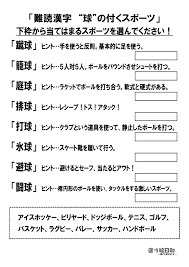 「難読漢字 “球”の付くスポーツ」
下枠から当てはまるスポーツを選んでください！
「蹴球」 ヒント…手を使うと反則、基本的に足を使う。
「籠球」 ヒント…5人対5人。ボールをバウンドさせシュートを打つ。
「庭球」 ヒント…ラケットでボールを打ち合う。軟式と硬式がある。
「排球」 ヒント…レシーブ！トス！アタック！
「打球」 ヒント…クラブという道具を使って、静止したボールを打つ。
「氷球」 ヒント…スケート靴を履いて行う。
「避球」 ヒント…避けるとセーフ、当たるとアウト！
「闘球」 ヒント…楕円形のボールを使い、タックルをする激しいスポーツ。
アイスホッケー、ビリヤード、ドッジボール、テニス、ゴルフ、
バスケット、ラグビー、バレー、サッカー、ハンドボール